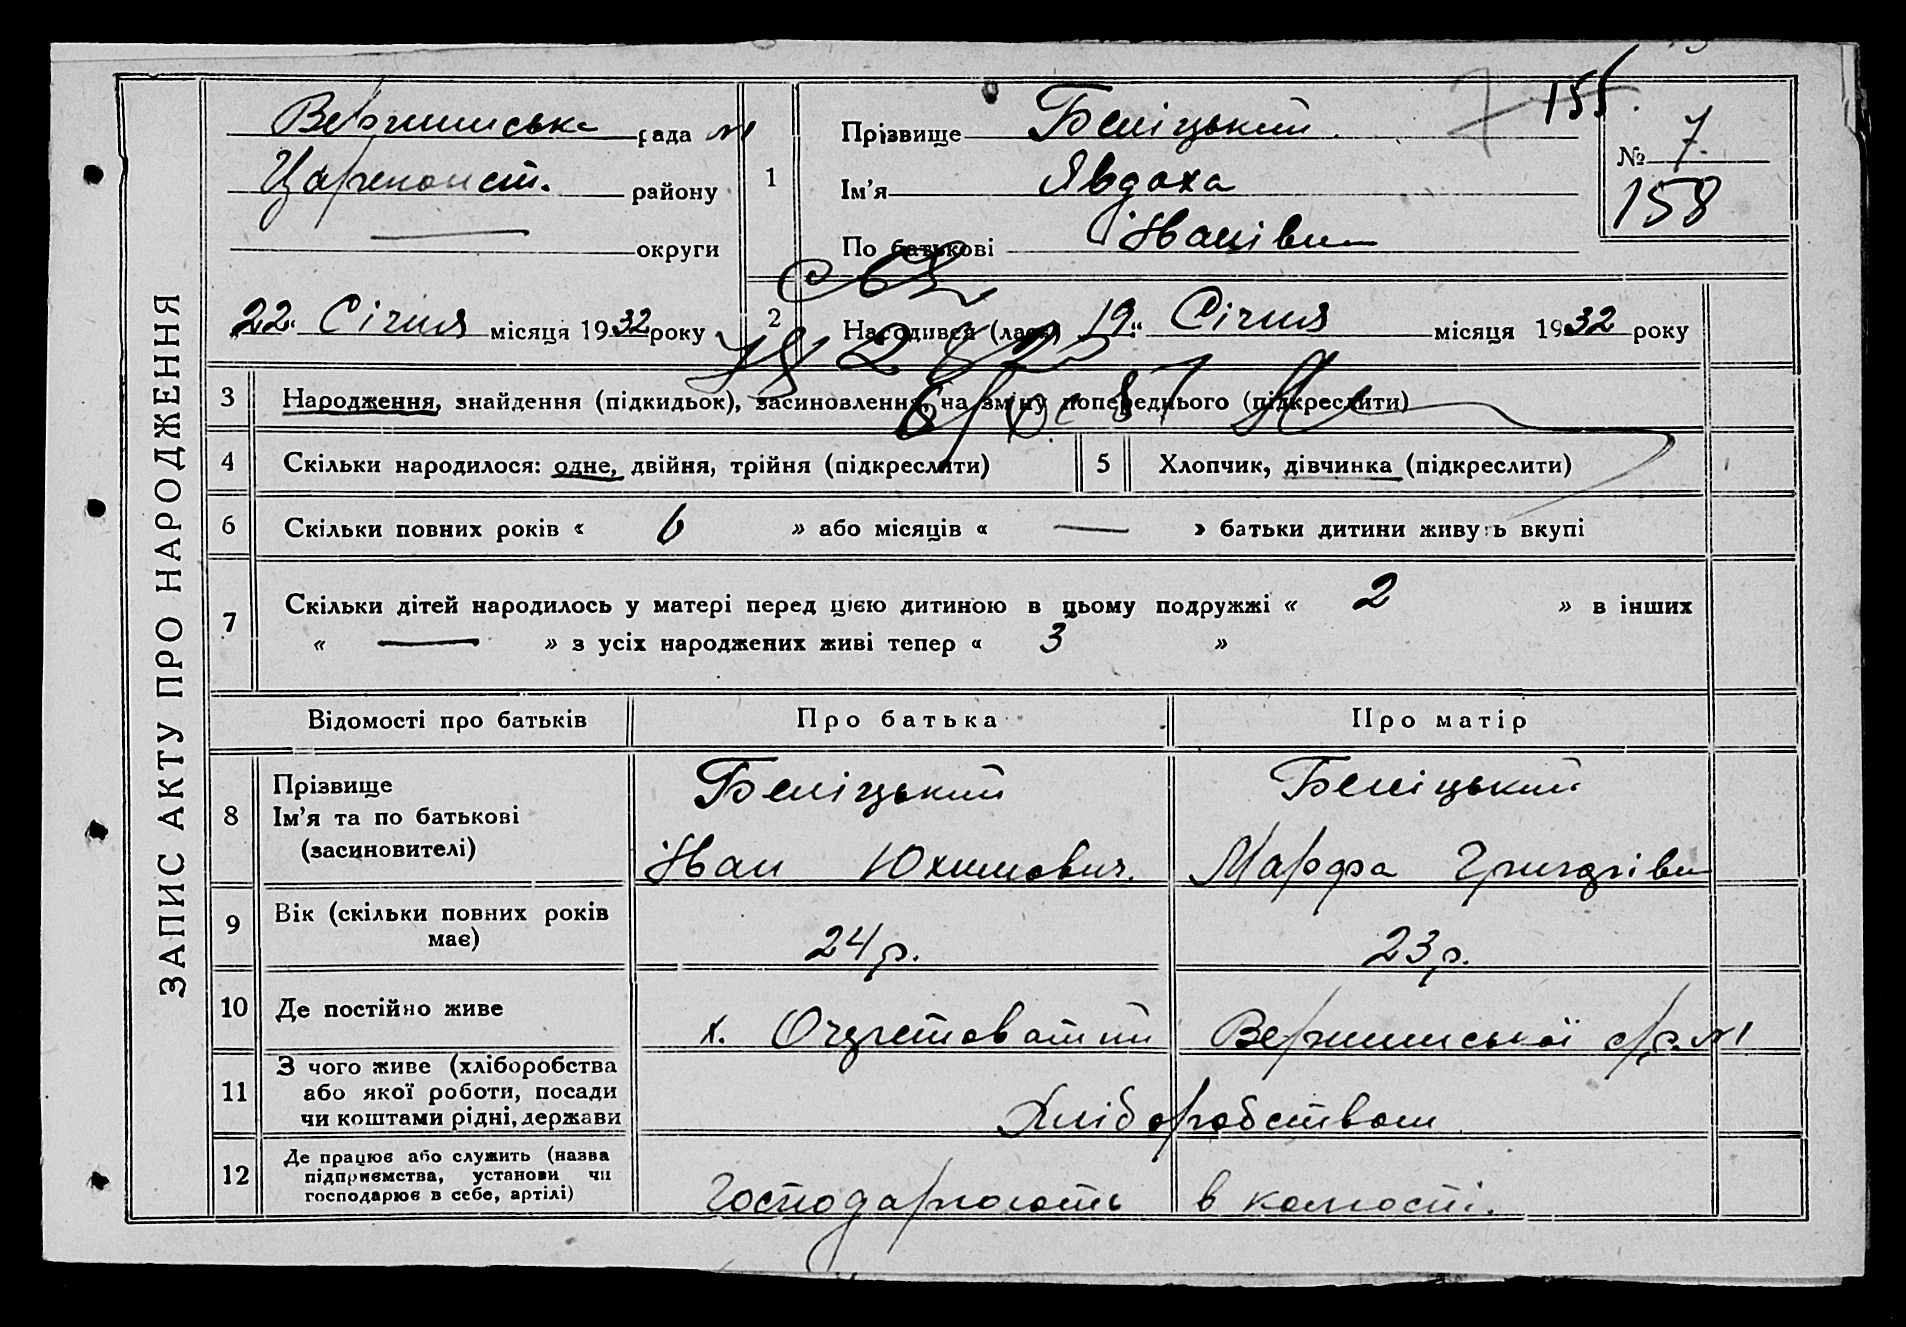 ЗАПИС АКТУ ПРО НАРОДЖЕННЯ
155.
Вершинська рада №1
Царичанст. району
— округи
22 „ Січня місяця 1932 року
1
Прізвище Беліцький
Ім'я Явдоха
По батькові Іванівн
№ 7.
158
2
Народився (лась) 19 „ Січня місяця 1932 року
3 Народження, знайдення (підкидьок), засиновлення, на зміну попереднього (підкреслити)
4 Скільки народилося: одне, двійня, трійня (підкреслити) 5 Хлопчик, дівчинка (підкреслити)
6 Скільки повних років « 6 » або місяців « — » батьки дитини живуть вкупі
7 Скільки дітей народилось у матері перед цією дитиною в цьому подружжі « 2 » в інших
« — » з усіх народжених живі тепер « 3 »
Відомості про батьків Про батька Про матір
8 Прізвище Беліцький Беліцький
Ім'я та по батькові
(засиновителі) Іван Юхимович. Марфа Григорівн
9 Вік (скільки повних років
має) 24 р. 23 р.
10 Де постійно живе х. Очеретоватий Вершинської с/р. №1
11 З чого живе (хліборобства
або якої роботи, посади
чи коштами рідні, держави Хліборобством
12 Де працює або служить (назва
підприємства, установи чи
господарює в себе, артілі) Господарюють в комості.